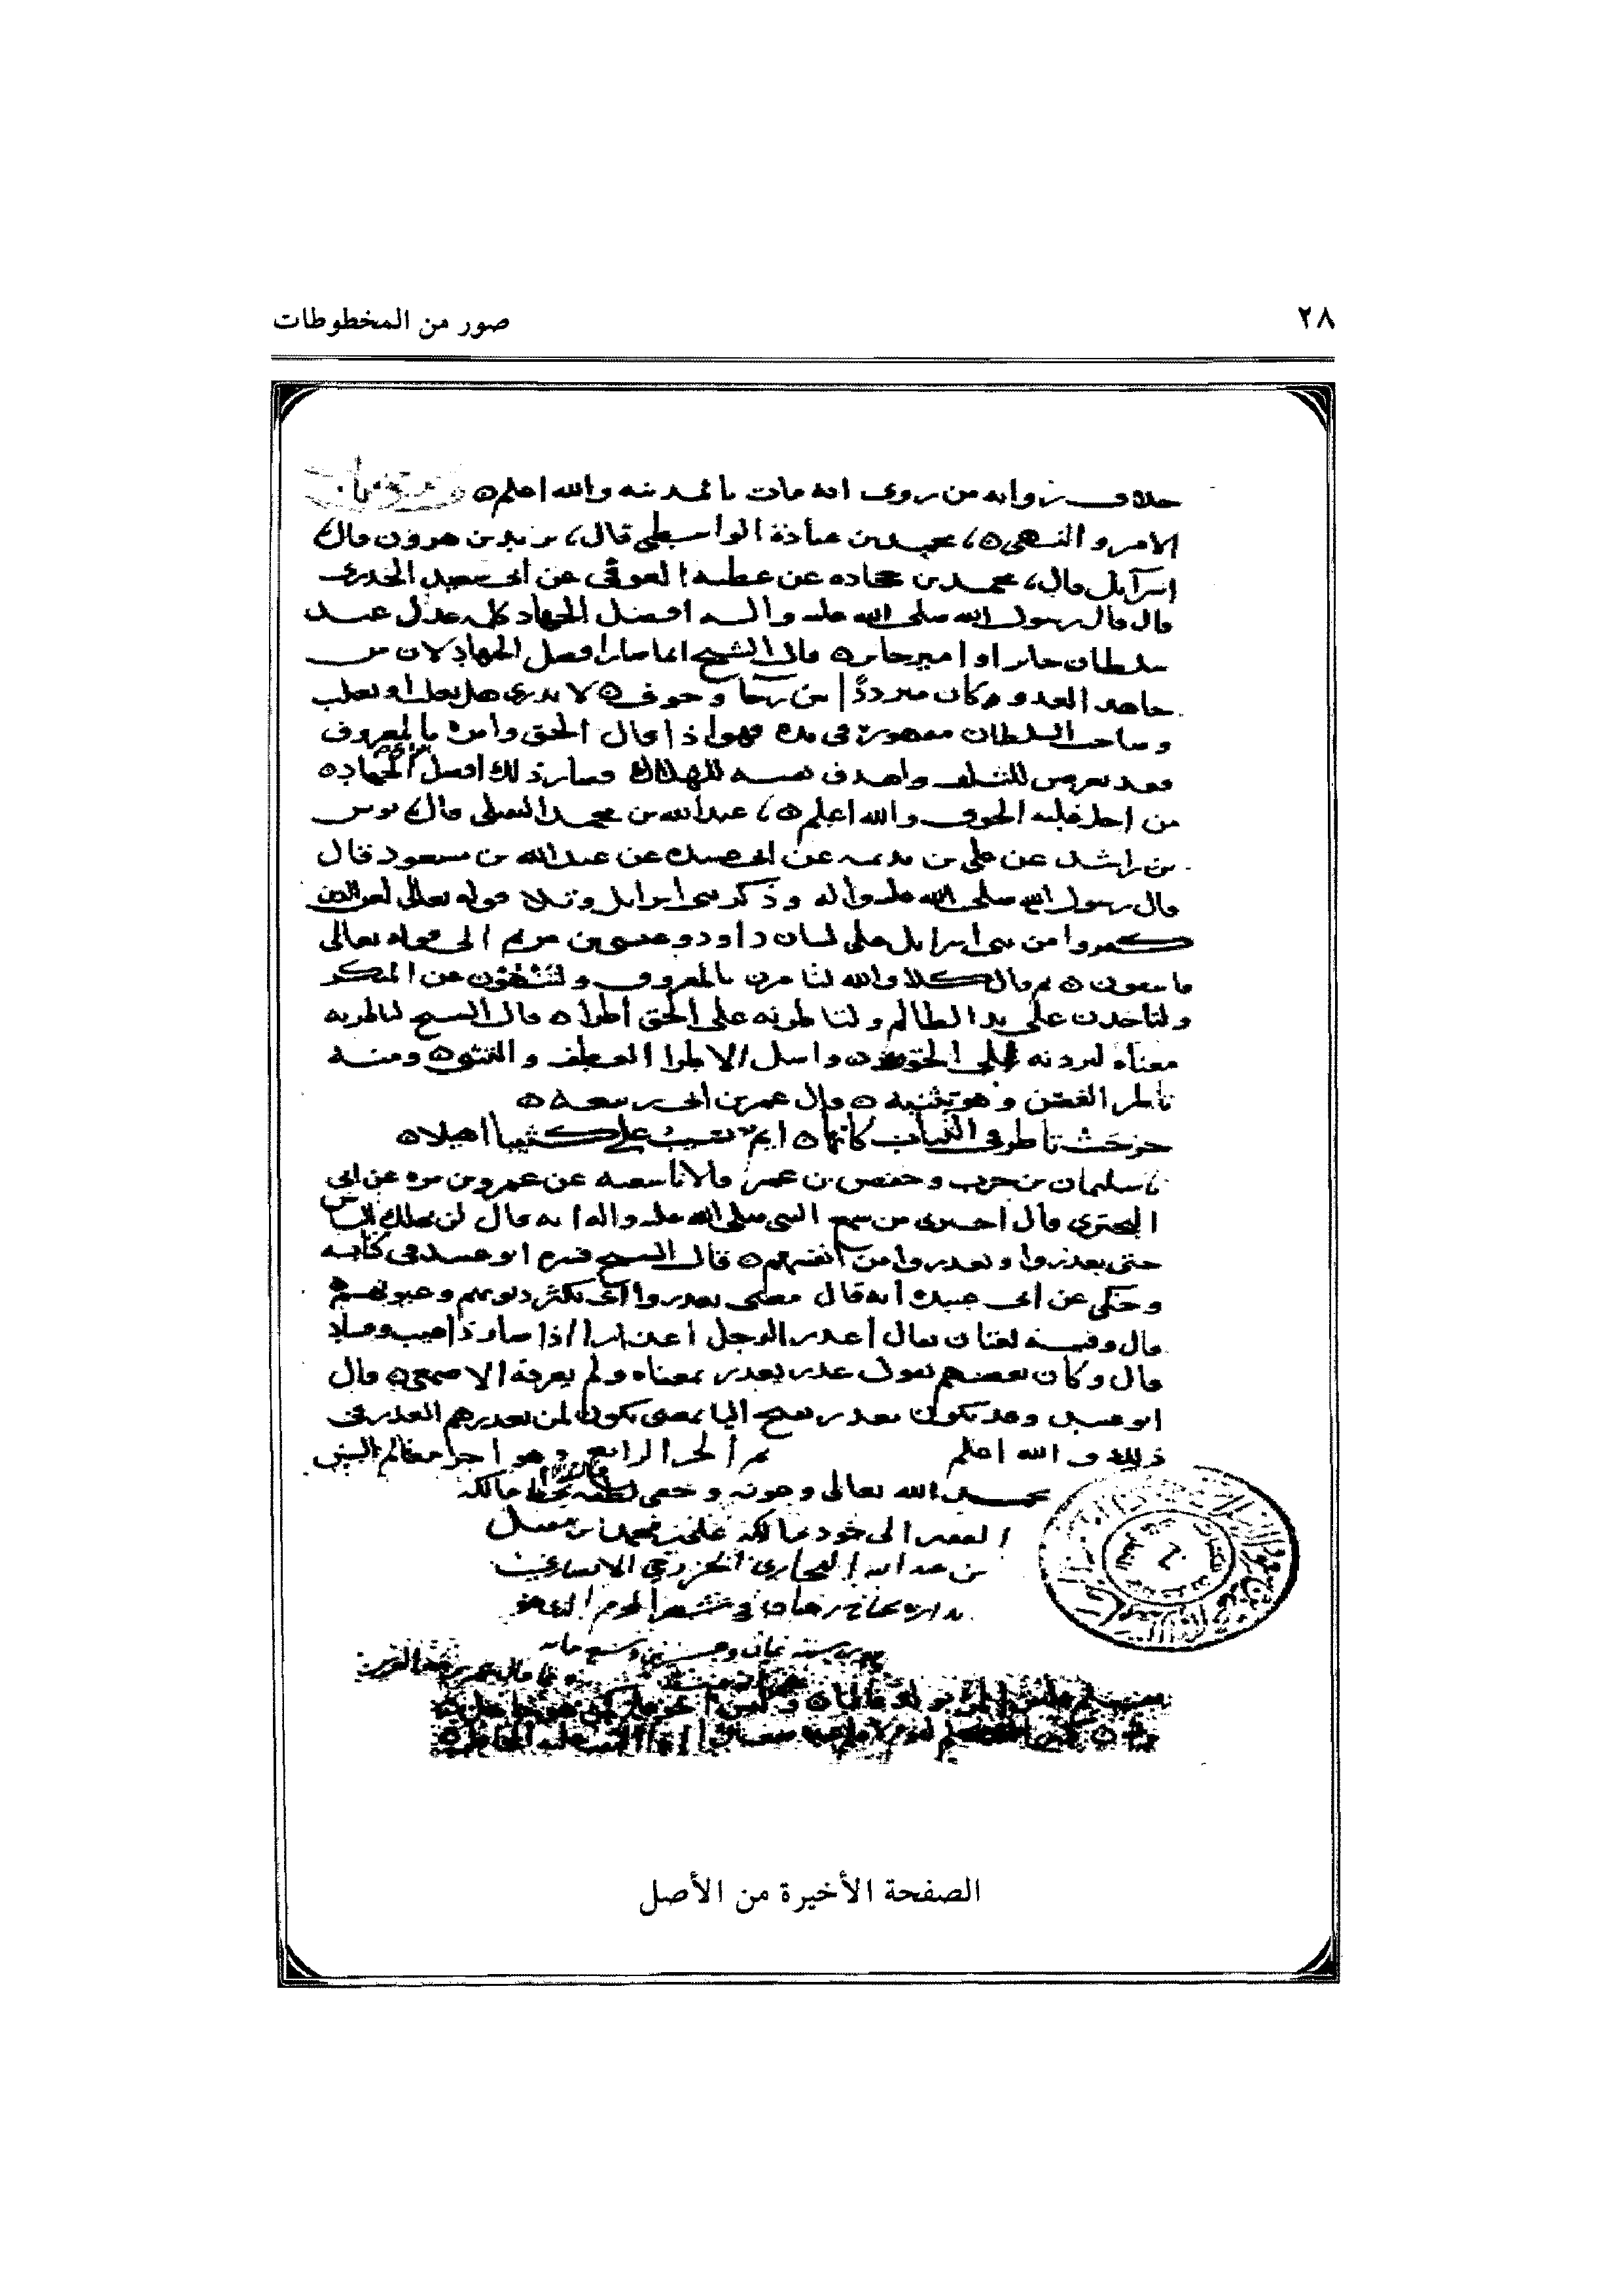 ٢٨
صور من المخطوطات
خلاف رواية من روى انه مات بالمدينة والله اعلم ومن باب
الامر والنهي نا محمد بن عبادة الواسطي قال نا يزيد بن هرون قال نا
اسرآيل قال نا محمد بن جحاده عن عطية العوفي عن ابي سعيد الخدري
قال قال رسول الله صلى الله عليه وآله افضل الجهاد كلمة عدل عند
سلطان جابر او امير جابر قال الشيخ انما صار افضل الجهاد لان من
جاهد العدو وكان مترددًا بين رجا وخوف لا يدري هل يغلب او يغلب
وصاحب السلطان مقهور في يده فهو اذا قال الحق وامره بالمعروف
فقد تعرض للتلف واهدف نفسه للهلاك فصار ذلك افضل انواع الجهاد
من اجل غلبة الخوف والله اعلم نا عبد الله بن محمد النفيلي قال نا يونس
بن راشد عن علي بن بذيمة عن ابي عبيدة عن عبد الله بن مسعود قال
قال رسول الله صلى الله عليه وآله وذكر بني اسرايل وتلا قوله تعالى لعن الذين
كفروا من بني اسرايل على لسان داود وعيسى بن مريم الى قوله تعالى
فاسقون ثم قال كلا والله لتأمرن بالمعروف ولتنهون عن المنكر
ولتأخذن على يد الظالم ولتأطرنه على الحق أطرا قال الشيخ لتأطرنه
معناه لتردنه على الحق واصل الاطر العطف والتثنى ومنه
تأطر الغصن وهو تثنيه وقال عمر بن ابي ربيعة
خرجت تأطر في الثياب كأنها ايم تسيب على كثيبا اهيلا
نا سليمان بن حرب وحفص بن عمر قالا نا شعبة عن عمرو بن مره عن ابي
البختري قال اخبرني من سمع النبي صلى الله عليه وآله انه قال لن يهلك الناس
حتى يعذروا او يعذروا من انفسهم قال الشيخ فسره ابو عبيد في كتابه
وحكى عن ابي عبيدة أنه قال معنى يعذروا اي تكثر ذنوبهم وعيوبهم
قال وفيه لغتان يقال أعذر الرجل اعذارا اذا صار ذا عيب وفساد
قال وكان بعضهم يقول عذر يعذر بمعناه ولم يعرفه الاصمعي قال
ابو عبيد وقد يكون يعذر بفتح اليا بمعنى يكون لمن يعذرهم العذر في
ذلك والله اعلم تم الجزا الرابع وهو اخر معالم السنن
بحمد الله تعالى وعونه وخفي لطفه
الفقير الى جود مالكه علي بن
بن عبد الله البخاري الخزرجي الانصاري
في شهر المحرم
وخمسين وتسع مايه
الصفحة الأخيرة من الأصل